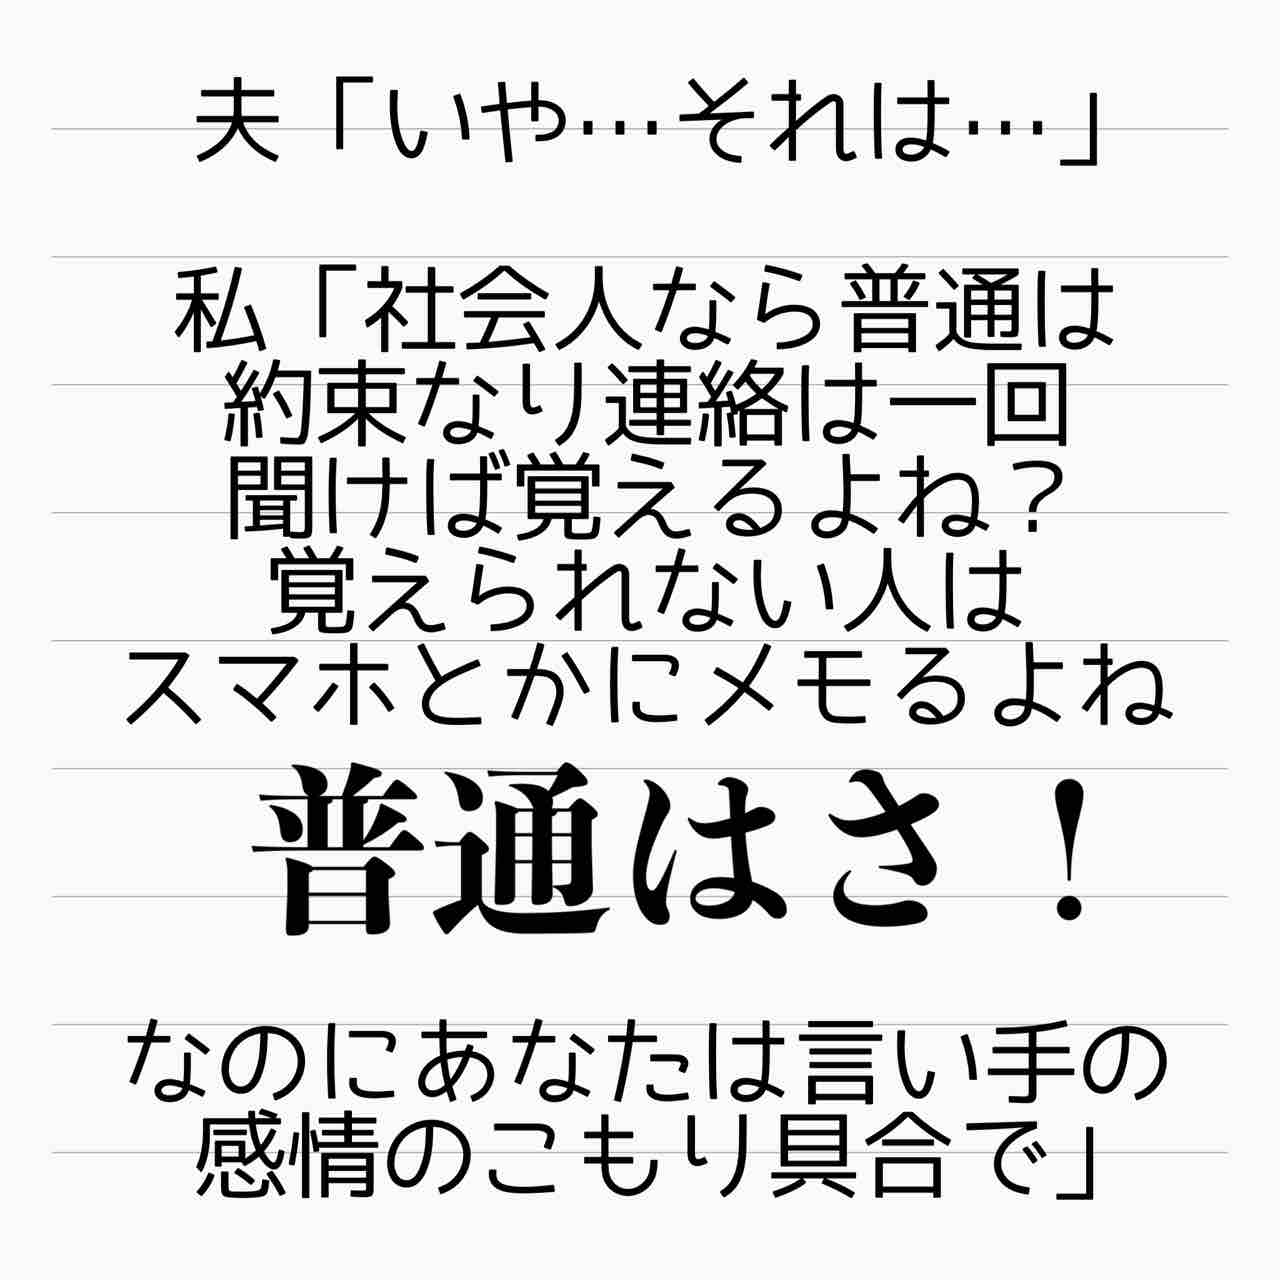 夫「いや…それは…」
私「社会人なら普通は
約束なり連絡は一回
聞けば覚えるよね？
覚えられない人は
スマホとかにメモるよね
普通はさ！
なのにあなたは言い手の
感情のこもり具合で」